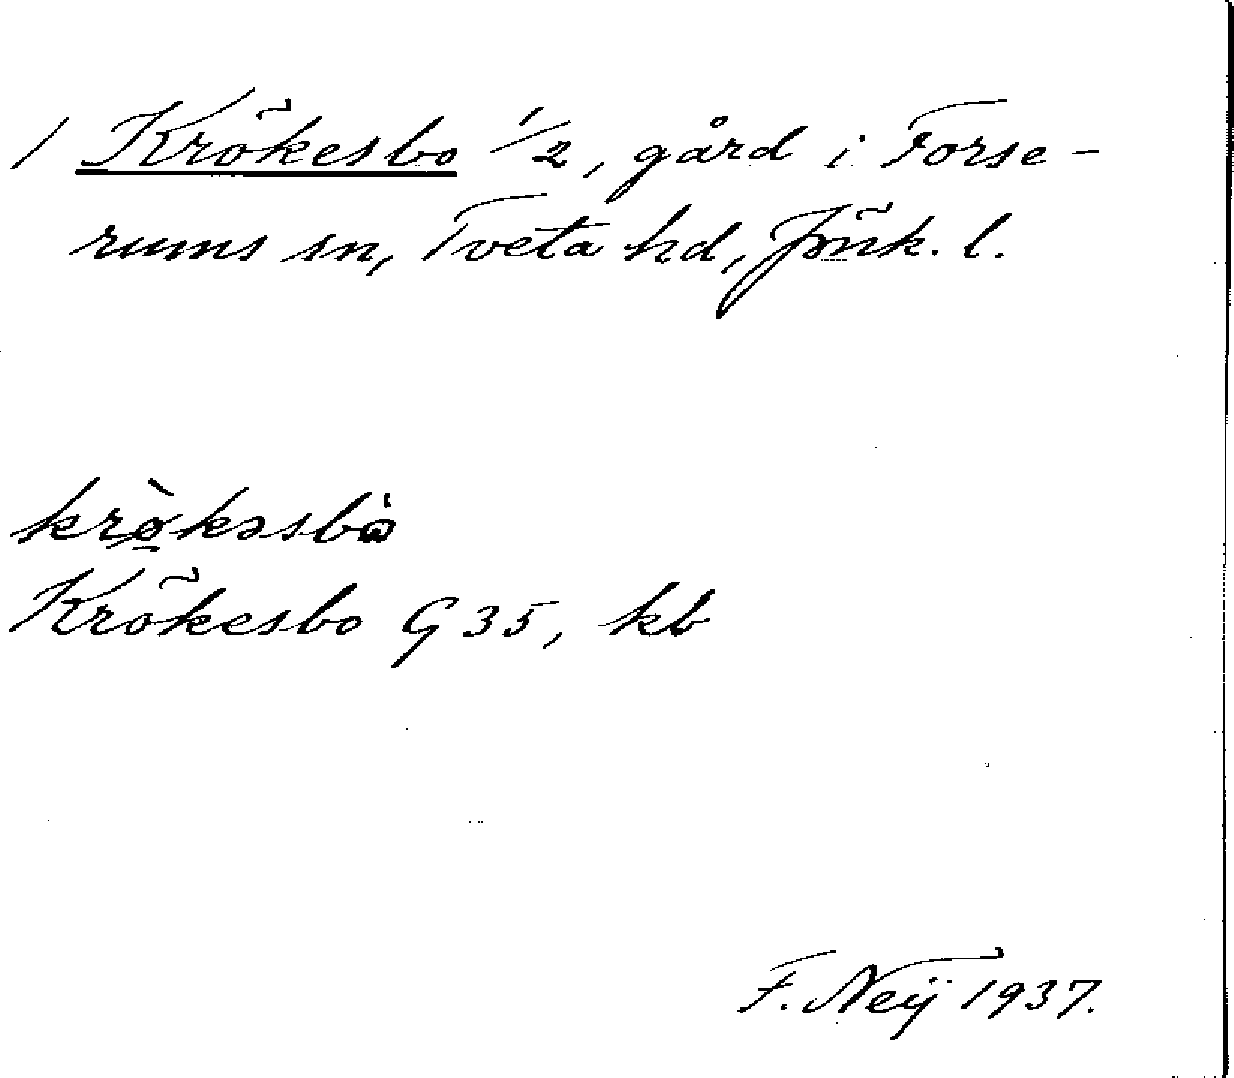 / Krökesbo 1/2, gård i Forse-
rums sn, Tveta hd, Jönk. l.
krø̠̀kəsbò
Krökesbo G 35, kb
F. Neij 1937.